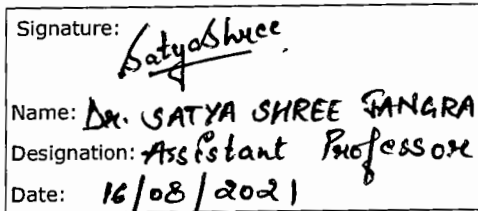 Signature: SatyaShree
Name: Dr. SATYA SHREE JANGRA
Designation: Assistant Professor
Date: 16/08/2021